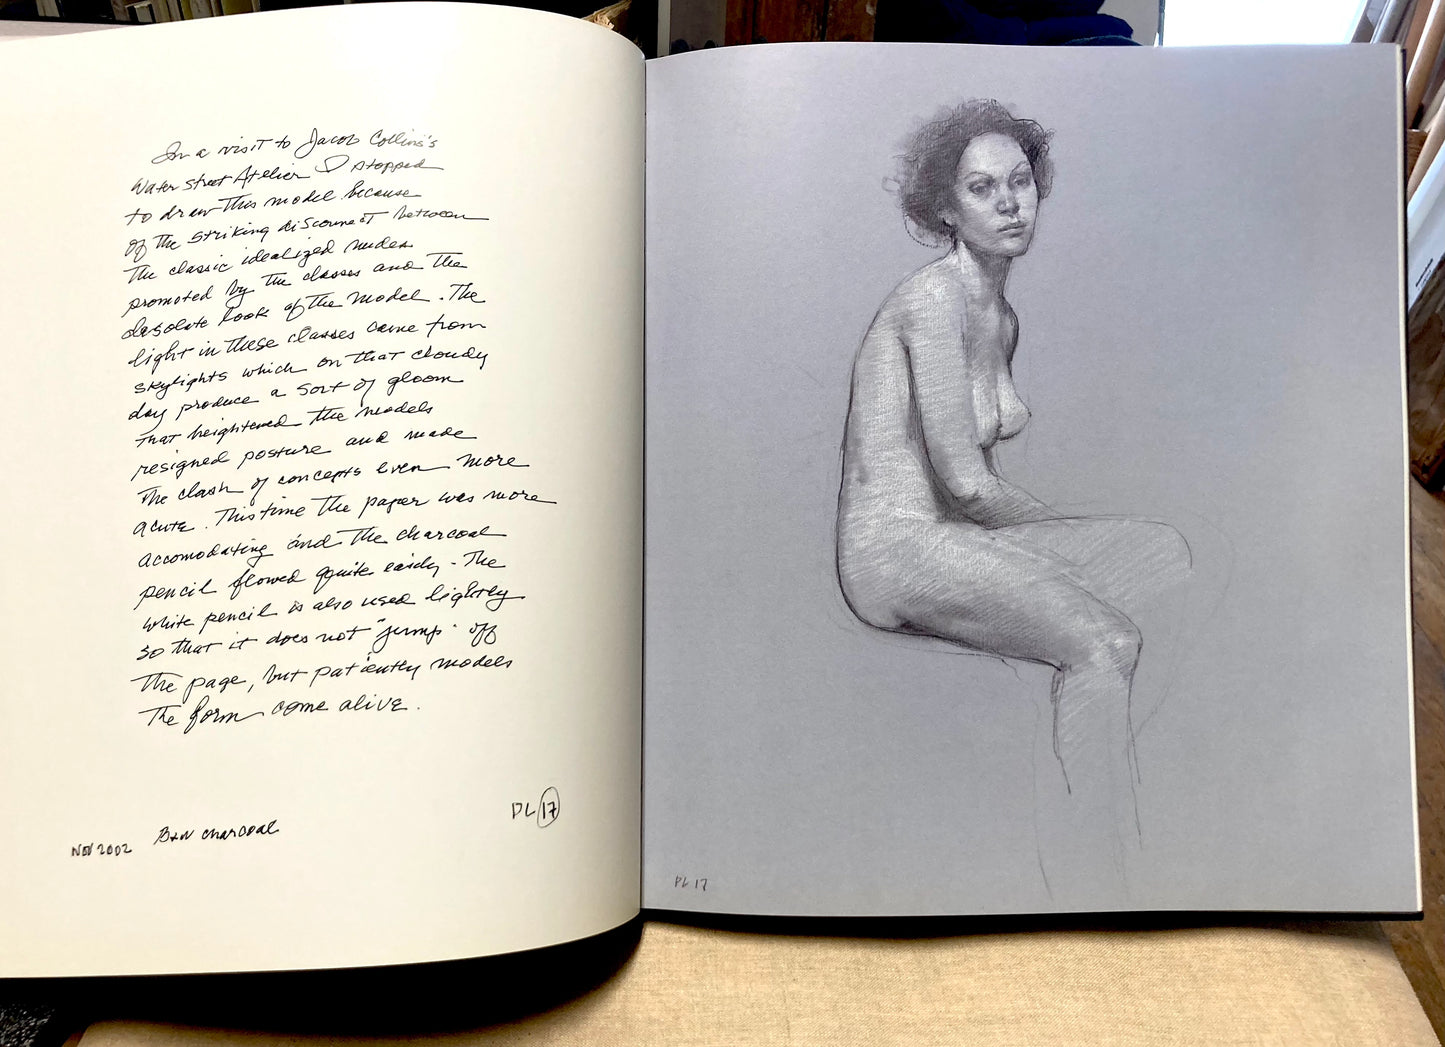 In a visit to Jacob Collins's
Water Street Atelier I stopped
to draw this model because
of the striking disconnect between
the classic idealized nudes
promoted by the classes and the
desolate look of the model. The
light in these classes came from
skylights which on that cloudy
day produce a sort of gloom
that heightened the models
resigned posture and made
the clash of concepts even more
acute. This time the paper was more
accomodating and the charcoal
pencil flowed quite easily. The
white pencil is also used lightly
so that it does not "jump" off
the page, but patiently models
the form come alive.
PL 17
Nov 2002 B+W charcoal
PL 17